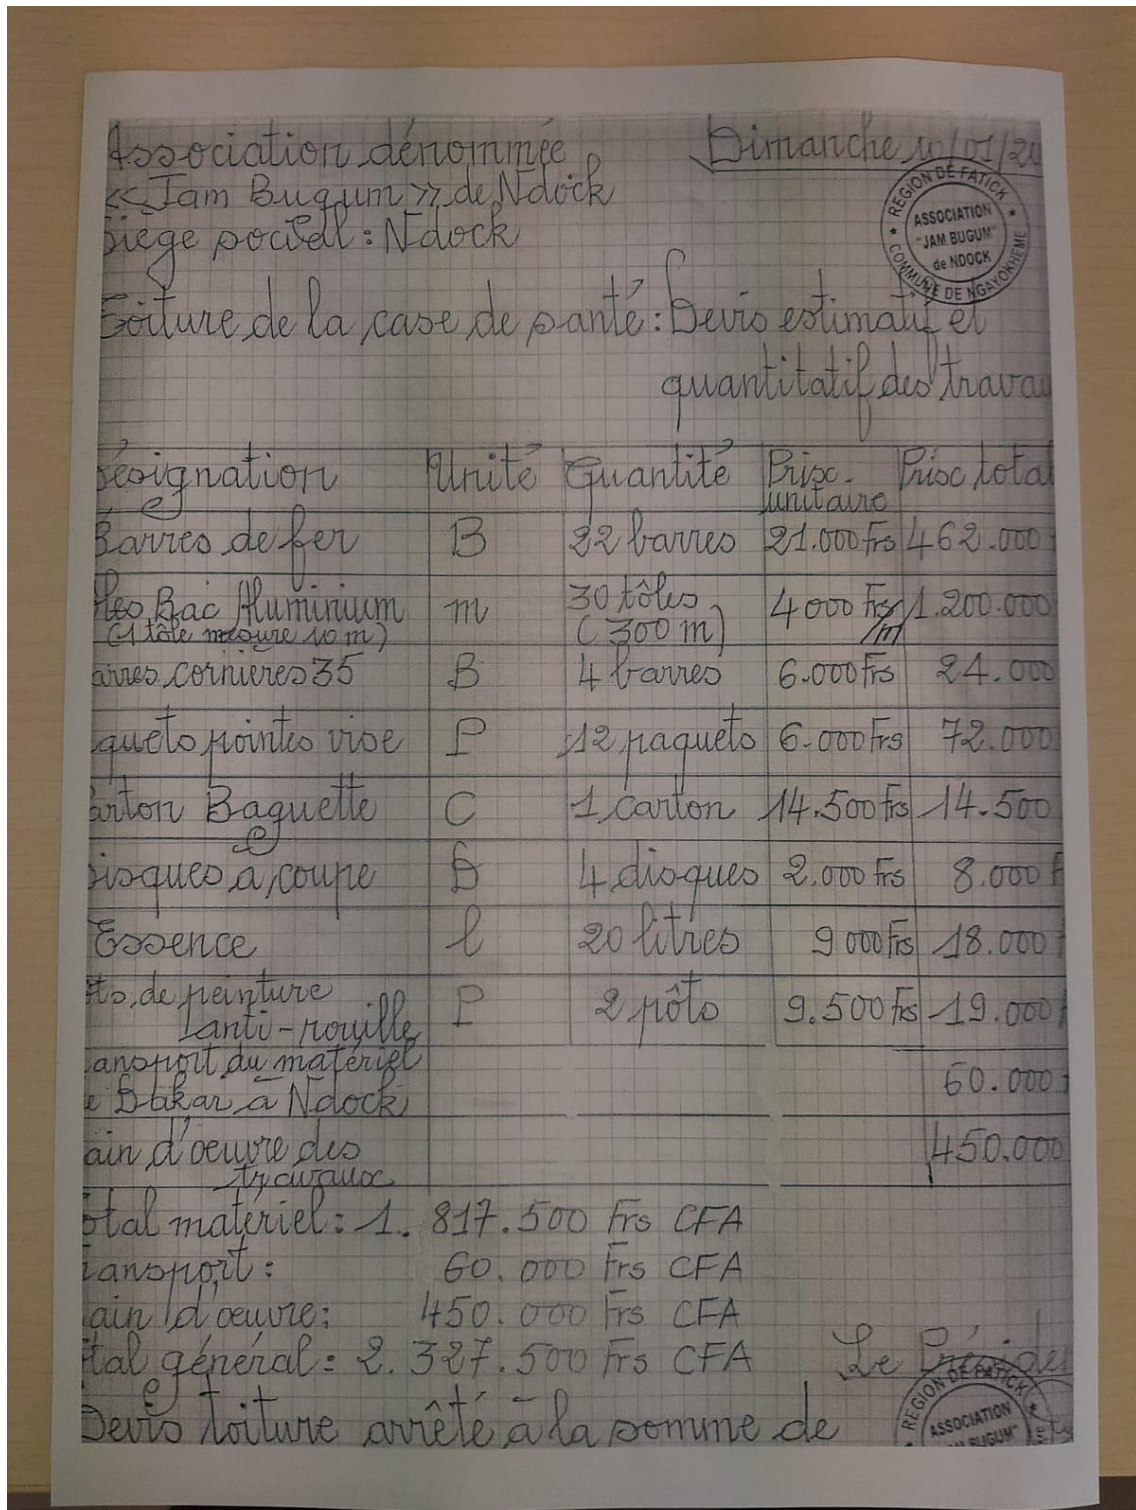 Association dénommée Dimanche 10/01/20
<<Jam Bugum>> de Ndock
Siège social : Ndock
REGION DE FATICK
ASSOCIATION
"JAM BUGUM"
de NDOCK
COMMUNE DE NGAYOKHEME
Toiture de la case de santé : Devis estimatif et
quantitatif des travau
Désignation Unité Quantité Prix unitaire Prix total
Barres de fer B 22 barres 21.000 Frs 462.000
les Bac Aluminium (1 tôle mesure 10 m) m 30 tôles (300 m) 4000 Frs/m 1.200.000
arres cornières 35 B 4 barres 6.000 Frs 24.000
quets pointes vise P 12 paquets 6.000 Frs 72.000
arton Baguette C 1 carton 14.500 Frs 14.500
isques à coupe D 4 disques 2.000 Frs 8.000 F
Essence l 20 litres 9 000 Frs 18.000
ts de peinture anti-rouille P 2 pôts 9.500 Frs 19.000
ansport du matériel
e Dakar à Ndock 60.000
ain d'oeuvre des
travaux 450.000
otal matériel : 1. 817.500 Frs CFA
ransport : 60.000 Frs CFA
ain d'oeuvre : 450.000 Frs CFA
tal général : 2.327.500 Frs CFA Le Préside
Devis toiture arrêté à la somme de
REGION DE FATICK
ASSOCIATION
"JAM BUGUM"